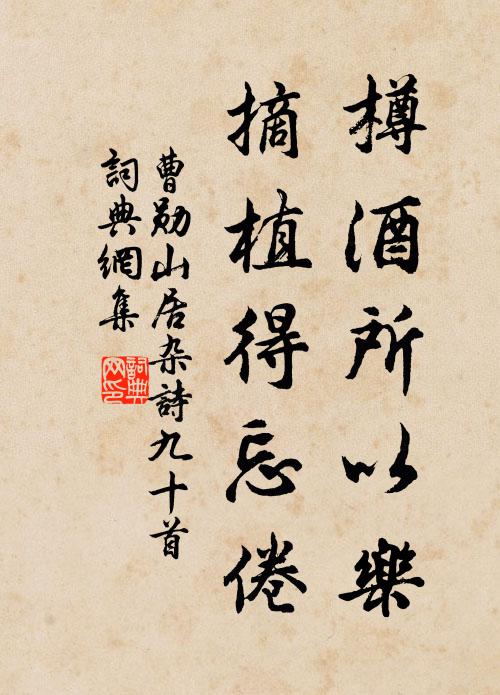 樽酒所以樂
摘植得忘倦
曹勛山居杂詩九十首
詞典網集
詞典
网印